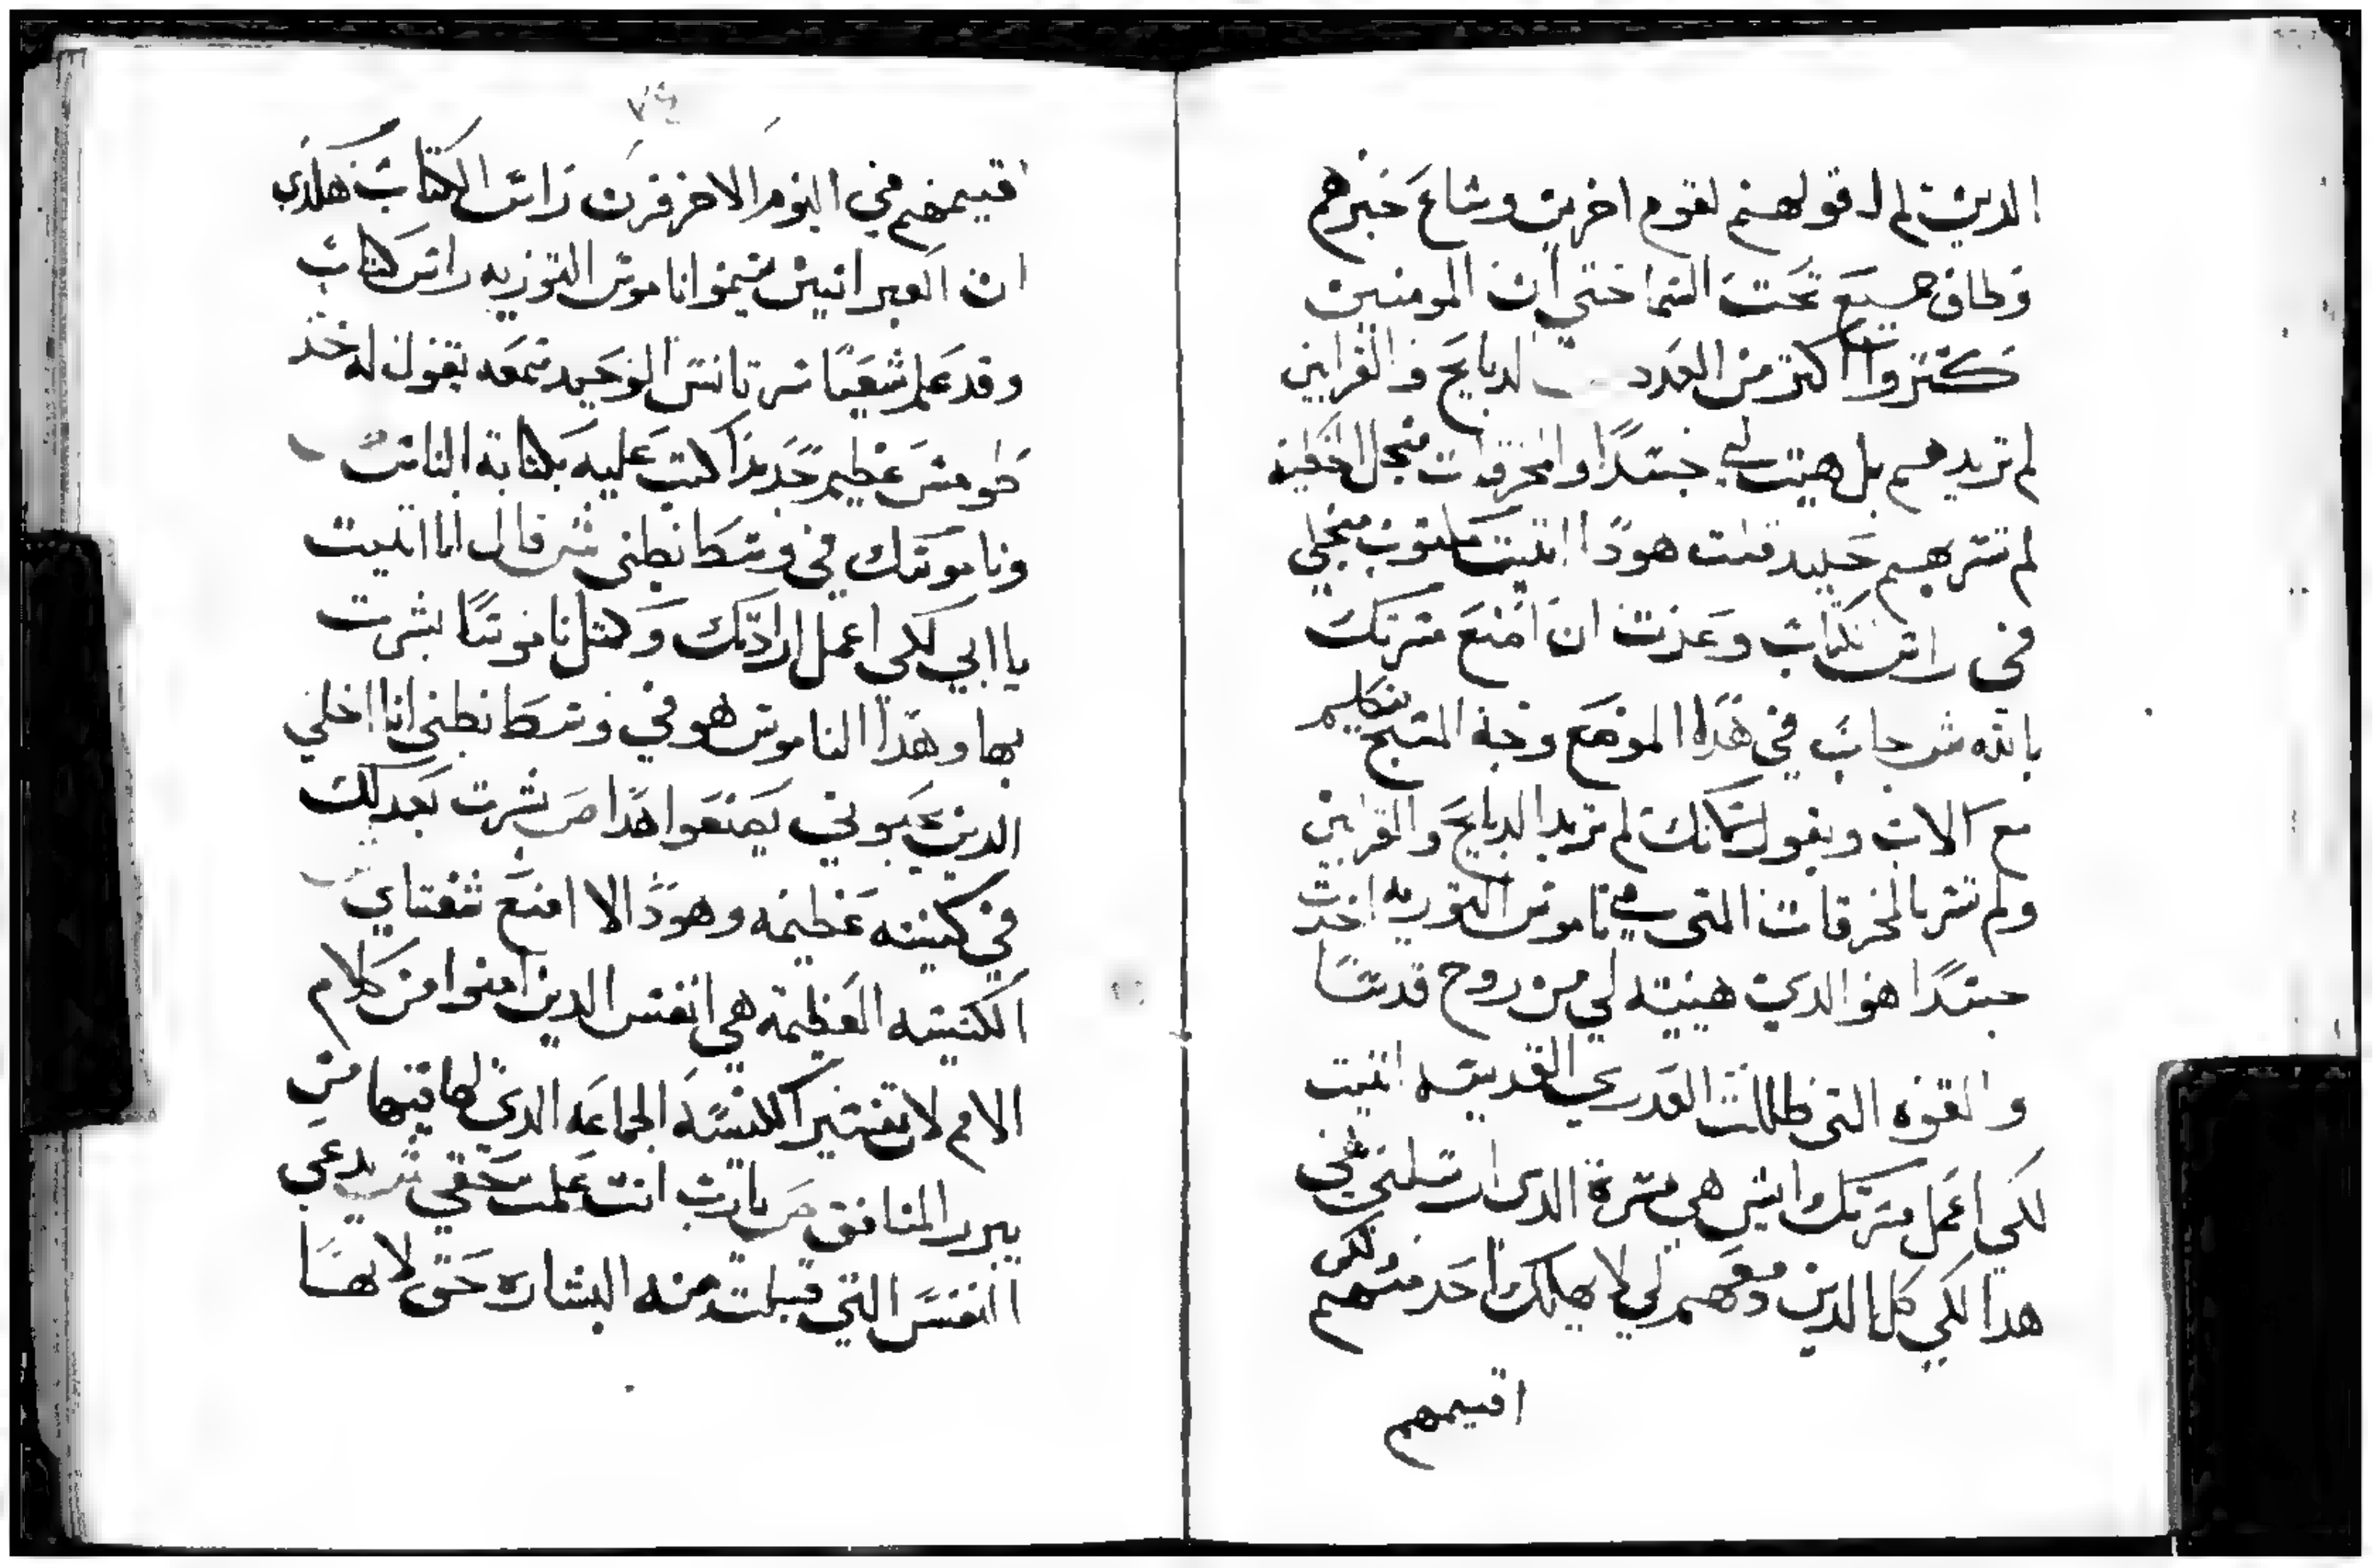 الدين لم اقولهم لقوم اخرين وشاع خبرهم
وطاف جميع تحت السما حتى ان المومنين
كتروا اكتر من العدد الدبايح والقرابين
لم تريدهم بل هيت لي جسدا والمحرقات من اجل الخطيه
لم تسر بهم حينيد قلت هودا اتيت مكتوب من اجلي
في راس كتاب وعزت ان اصنع مسرتك
يا الله شرحات في هدا الموضع وجه المسيح تكليم
مع الاب ويقول انك لم تريد الدبايح والقرابين
ولم تسر بالمحرقات التي في ناموس التوريه اخدت
جسدا هو الدي هييته لي من روح قدسا
والقوه التي ظللت العدري القديسه اتيت
لكي اعمل مسرتك وايش هي مسرة الدي ارسلني هي
هدا لكي كل الدين دفعهم لي لا يهلك احد منهم ولكن
اقيمهم
اقيمهم في اليوم الاخر فرن راس الكتاب هكدي
ان العبرانيين سيموا ناموس التوريه راس كتاب
وقد علم شعيا سر تانس الوحيد سمعه يقول له خد
طومس عظيم جديدا اكتب عليه بكتابة الناس
وناموسك في وسط بطني تم قال انا اتيت
يا ابي لكي اعمل ارادتك وكتل ناموسا بشرت
بها وهدا الناموس هو في وسط بطني انا اخلي
الدين يحبوني يصنعوا هدا ص بشرت بعدلك
في كنيسه عظيمه وهودا لا امنع شفتاي
الكنيسه العظيمه هي انفس الدين امنوا من كلام
الامم لا تفتير الكنيسه الجماعه الدي لها فيها من
يبرر المنافق ص يارب انت علمت حقي تم يدعي
النفس التي قبلت منه البشاره حق لانها